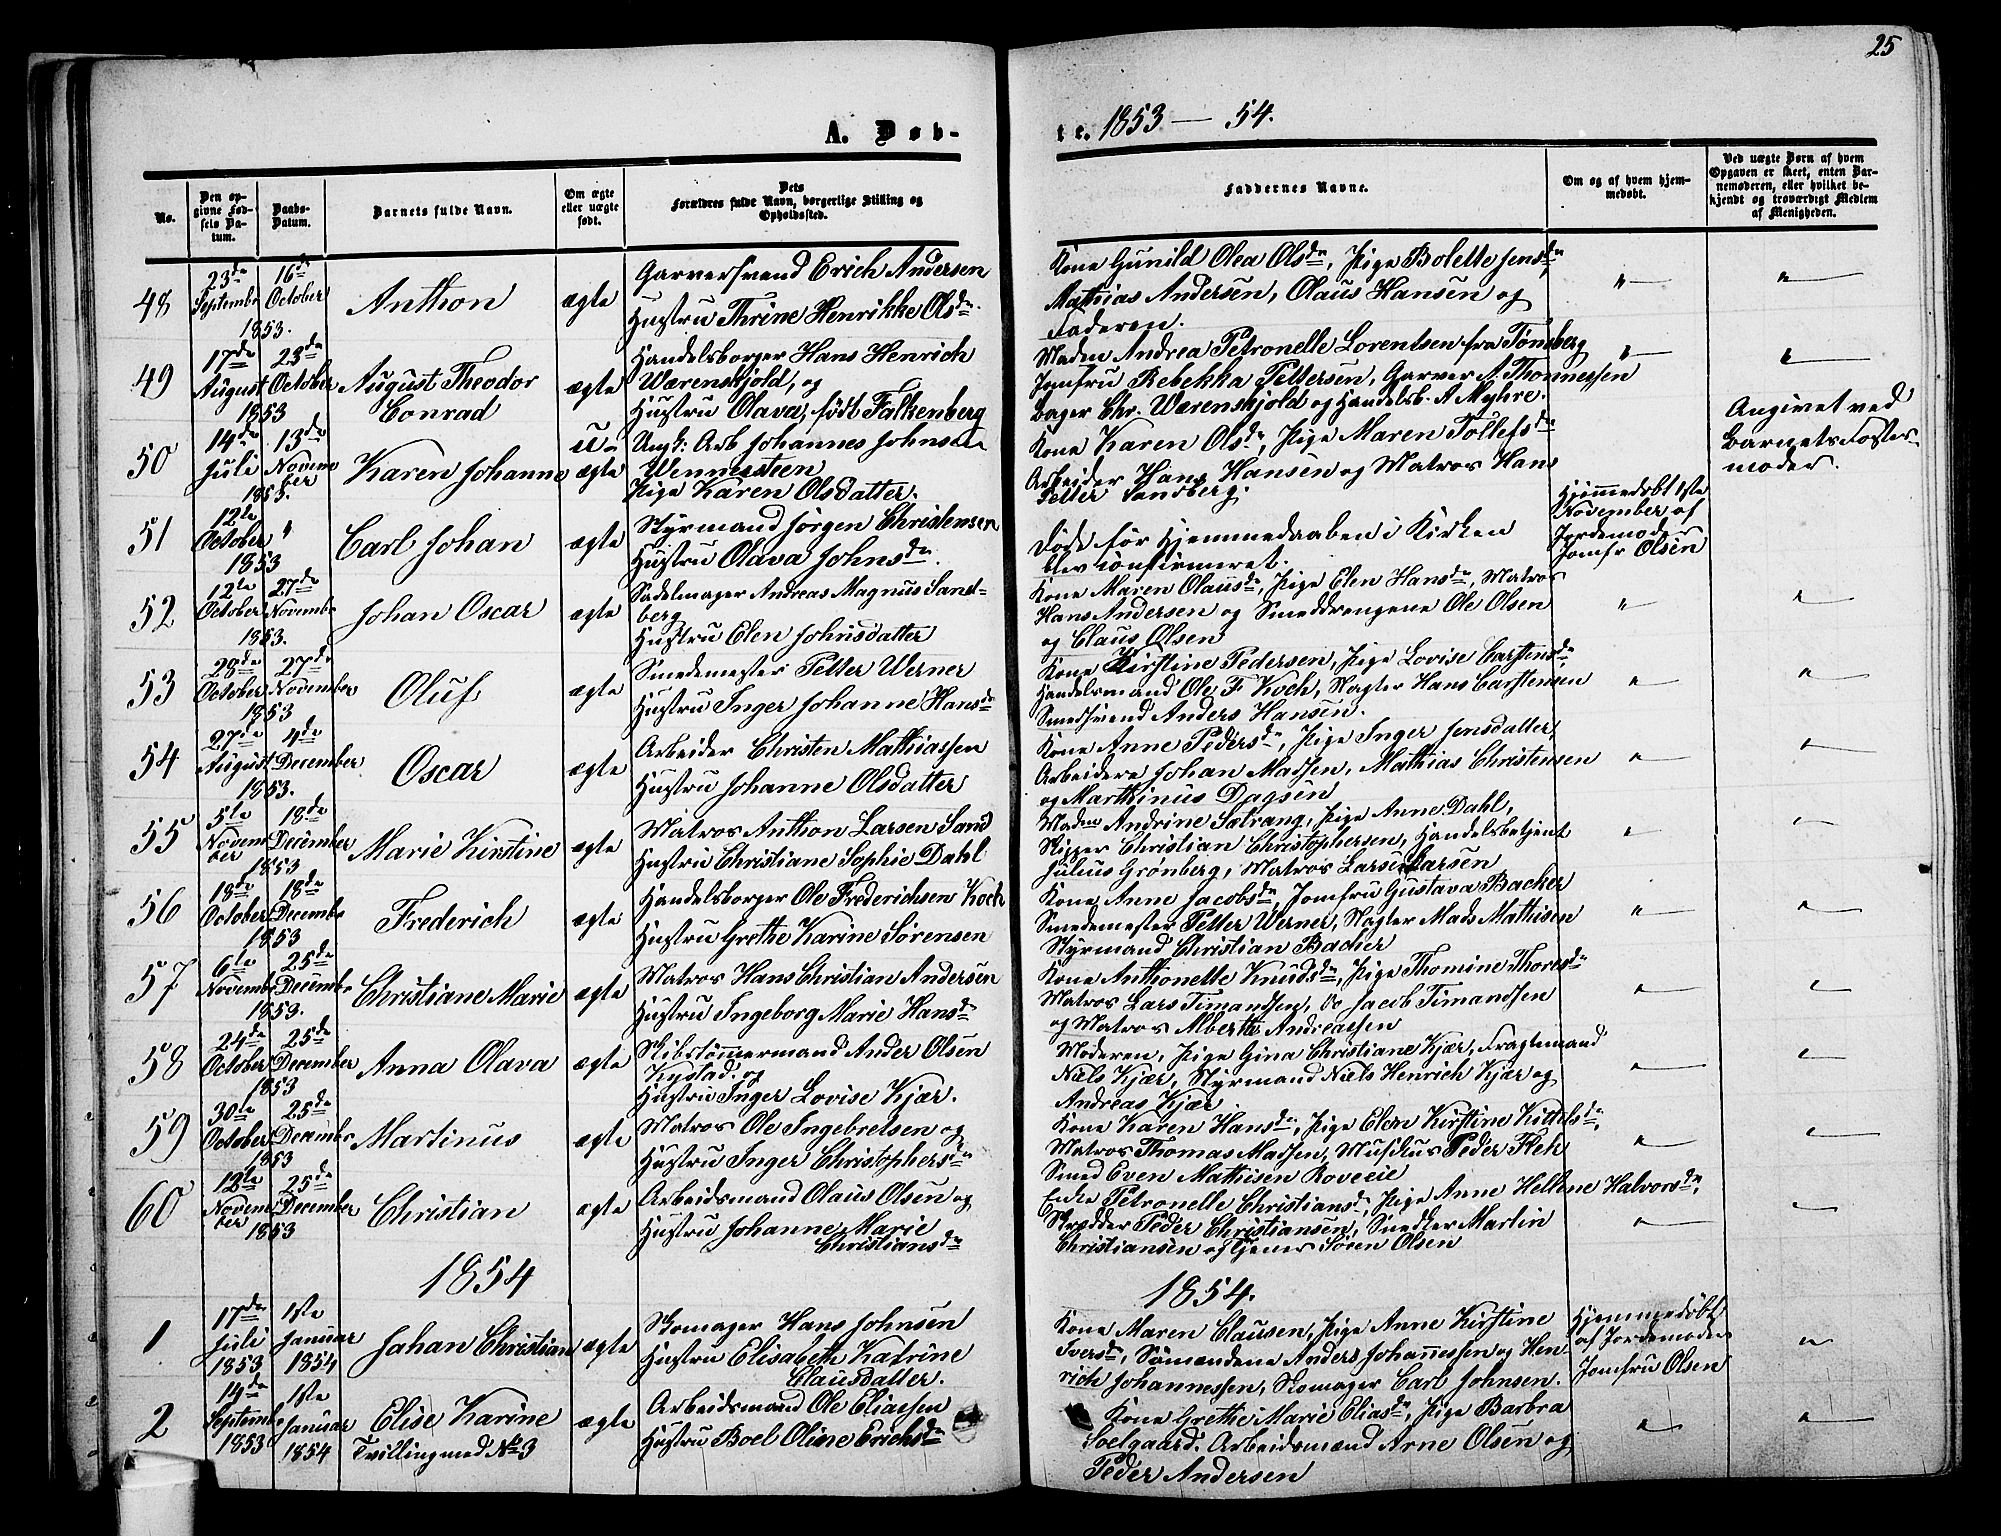 25
A. Døb-
te. 1853 — 54.
No.
Den op-
givne Fød-
sels Da-
tum.
Daabs-
Datum.
Barnets fulde Navn.
Om ægte
eller uægte
født.
Dets
Forældres fulde Navn, borgerlige Stilling og
Opholdssted.
Faddernes Navne.
Om og af hvem hjem-
medøbt.
Ved uægte Børn af hvem
Opgaven er skeet, enten Bar-
nemoderen, eller hvilket be-
kjendt og troværdigt Medlem
af Menigheden.
48
23de
September
1853.
16de
October
Anthon
ægte
Garversvend Erich Andersen
Hustru Thrine Henrikke Olsdr.
Kone Gunild Olea Olsdr, Pige Bolette Jensdr
Mathias Andersen, Olaus Hansen og
Faderen.
"
"
49
17de
August
1853
23de
October
August Theodor
Conrad
ægte
Handelsborger Hans Henrich
Wærenskjold, og
Hustru Olava, født Falkenberg
Madm Andrea Petronelle Lorentsen fra Tønsberg
Jomfru Rebekka Pettersen, Garver A. Thonnessen
Bager Chr. Wærenskjold og Handelsb. A Myhre.
"
"
50
14de
Juli
1853.
13de
Novem
ber
Karen Johanne
u-
ægte
Ungk: Arb Johannes Johnsen
Wennersteen
Pige Karen Olsdatter.
Kone Karen Olsdr, Pige Maren Tollefsdr
Arbeider Hans Hansen og Matros Hans
Petter Sandberg.
Angivet ved
Barnets Foster
moder.
51
12te
October
1853
"
Carl Johan
ægte
Styrmand Jørgen Christensen
Hustru Olava Johnsdr.
Døde før Hjemmedaaben i Kirken
blev confirmeret.
Hjemmedøbt 1ste
November af
Jordemoder
Jomfr Olsen
52
12te
October
1853.
27de
Novembr
Johan Oscar
ægte
Sadelmager Andreas Magnus Sand-
berg
Hustru Elen Johnsdatter
Kone Maren Olausdr, Pige Elen Hansdr, Matros
Hans Andersen og Smeddrengene Ole Olsen
og Claus Olsen
"
"
53
28de
October
1853
27de
November
Oluf
ægte
Smedemester Petter Werner
Hustru Inger Johanne Hansdr
Kone Kirstine Pedersen, Pige Lovise Carstensdr,
Handelsmand Ole F Koch, Slagter Hans Carstensen
Smedsvend Anders Hansen.
"
"
54
27de
August
1853.
4de
December
Oscar
ægte
Arbeider Christen Mathiassen
Hustru Johanne Olsdatter
Kone Anne Pedersdr, Pige Inger Jensdatter,
Arbeidere Johan Madsen, Mathias Christensen
og Marthinus Dagsen
"
"
55
5te
Novem
ber
1853
18de
December
Marie Kirstine
ægte
Matros Anthon Larsen Sand
Hustru Christiane Sophie Dahl
Madm Andrine Sætrang, Pige Anne Dahl,
Skipper Christian Christophersen, Handelsbetjent
Julius Grønberg, Matros Larsen
"
"
56
18de
October
1853
18de
Decembr
Frederich
ægte
Handelsborger Ole Frederichsen Koch
Hustru Grethe Karine Sørensen
Kone Anne Jacobsdr, Jomfru Gustava Backer
Smedemester Petter Werner, Slagter Mads Mathisen
Styrmand Christian Backer
"
"
57
6te
Novembr
1853.
25de
Decembr
Christiane Marie
ægte
Matros Hans Christian Andersen
Hustru Ingeborg Marie Hansdr
Kone Anthonette Knudsdr, Pige Thomine Thoresdr
Matros Lars Timandsen, Do Jacob Timandsen
og Matros Alberth Andreassen
"
"
58
24de
October
1853
25de
December
Anna Olava
ægte
Skibstømmermand Ander Olsen
Kystad. og
Hustru Inger Lovise Kjær.
Moderen, Pige Gina Christiane Kjær, Fragtemand
Niels Kjær, Styrmand Niels Henrich Kjær og
Andreas Kjær.
"
"
59
30te
October
1853
25de
Decembr
Martinus
ægte
Matros Ole Ingebretsen og
Hustru Inger Christophersdr
Kone Karen Hansdr, Pige Elen Kirstine Kittelsdr,
Matros Thomas Madsen, Musikus Peder Flek
Smed Even Mathisen
"
"
60
12te
Novem
ber
1853
25de
December
Christian
ægte
Arbeidsmand Olaus Olsen og
Hustru Johanne Marie
Christiansdr
Enke Petronelle Christiansdr, Pige Anne Hellene Halvorsdr,
Skrædder Peder Christiansen, Snedker Martin
Christiansen og Tjener Søren Olsen
"
"
1854
1854.
1
17de
Juli
1853
1ste
Januar
1854
Johan Christian
ægte
Skomager Hans Johnsen
Hustru Elisabeth Katrine
Clausdatter.
Kone Maren Clausen, Pige Anne Kirstine
Iversdr, Sømændene Anders Johannessen og Hen
rich Johannessen, Skomager Carl Johnsen.
Hjemmedøbt
af Jordemoder
Jomfru Olsen
"
2
14de
Septembr
1853
1ste
Januar
1854
Elise Karine
Tvilling med No 3
ægte
Arbeidsmand Ole Eliassen
Hustru Boel Oline Erichsdr
Kone Grethe Marie Eliasdr, Pige Barbra
Soelgaard. Arbeidsmænd Arne Olsen og
Peder Andersen
"
"